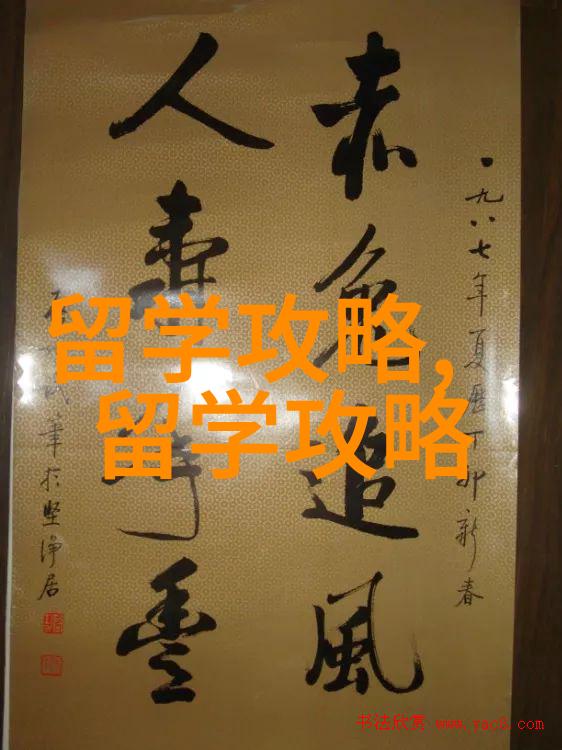 一九八七年夏曆丁卯新春
赤兔追風
人壽年豐
筆於堅浄居
留学攻略,
留学攻略
书法欣赏 www.yac8.com